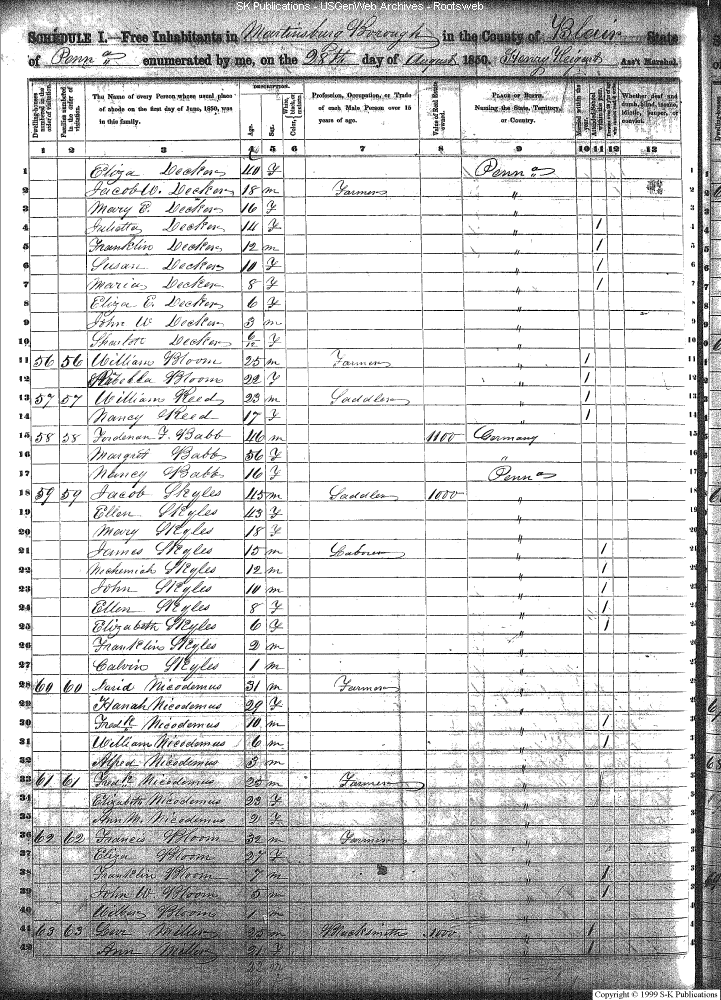 SK Publications - USGenWeb Archives - Rootsweb
SCHEDULE I.—Free Inhabitants in Martinsburg Borough in the County of Blair State
of Penna enumerated by me, on the 28th day of August 1850. Henry Ass't Marshal.
Dwelling-houses numbered in the order of visitation. Families numbered in the order of visitation. The Name of every Person whose usual place of abode on the first day of June, 1850, was in this family. DESCRIPTION. Age. Sex. Color, White, black, or mulatto. Profession, Occupation, or Trade of each Male Person over 15 years of age. Value of Real Estate owned. PLACE OF BIRTH. Naming the State, Territory, or Country. Married within the year. Attended School within the year. Whether deaf and dumb, blind, insane, idiotic, pauper, or convict.
1 2 3 4 5 6 7 8 9 10 11 12 13
1 Eliza Decker 40 F Penna 1
2 Jacob W. Decker 18 m Farmer " 2
3 Mary E. Decker 16 F " 3
4 Julietta Decker 14 F " 1 4
5 Franklin Decker 12 m " 1 5
6 Susan Decker 10 F " 1 6
7 Maria Decker 8 F " 1 7
8 Eliza E. Decker 6 F " 8
9 John W Decker 3 m " 9
10 Sharlott Decker 6/12 F " 10
11 56 56 William Bloom 25 m Farmer " 1 11
12 Bloom 22 F " 1 12
13 57 57 William Reed 23 m Saddler " 1 13
14 Nancy Reed 17 F " 1 14
15 58 58 Ferdenan F. Babb 46 m 1100 Germany 15
16 Margret Babb 56 F " 16
17 Nancy Babb 16 F Penna 17
18 59 59 Jacob Skyles 45 m Saddler 1000 " 18
19 Ellen Skyles 43 F " 19
20 Mary Skyles 18 F " 20
21 James Skyles 15 m Laborer " 1 21
22 Nehemiah Skyles 12 m " 1 22
23 John Skyles 10 m " 1 23
24 Ellen Skyles 8 F " 1 24
25 Elizabeth Skyles 6 F " 1 25
26 Franklin Skyles 2 m " 26
27 Calvin Skyles 1 m " 27
28 60 60 David Nicodemus 31 m Farmer " 28
29 Hanah Nicodemus 29 F " 29
30 Fredk Nicodemus 10 m " 1 30
31 William Nicodemus 6 m " 1 31
32 Alfred Nicodemus 3 m " 32
33 61 61 Fredk Nicodemus 25 m Farmer " 33
34 Elizabeth Nicodemus 23 F " 34
35 Ann M. Nicodemus 2 F " 35
36 62 62 Francis Bloom 32 m Farmer " 36
37 Eliza Bloom 27 F " 37
38 Franklin Bloom 7 m " 1 38
39 John W Bloom 5 m " 1 39
40 Bloom 1 m " 40
41 63 63 Miller 25 m Blacksmith 1000 " 1 41
42 Ann Miller 21 F " 1 42
Copyright © 1999 S-K Publications